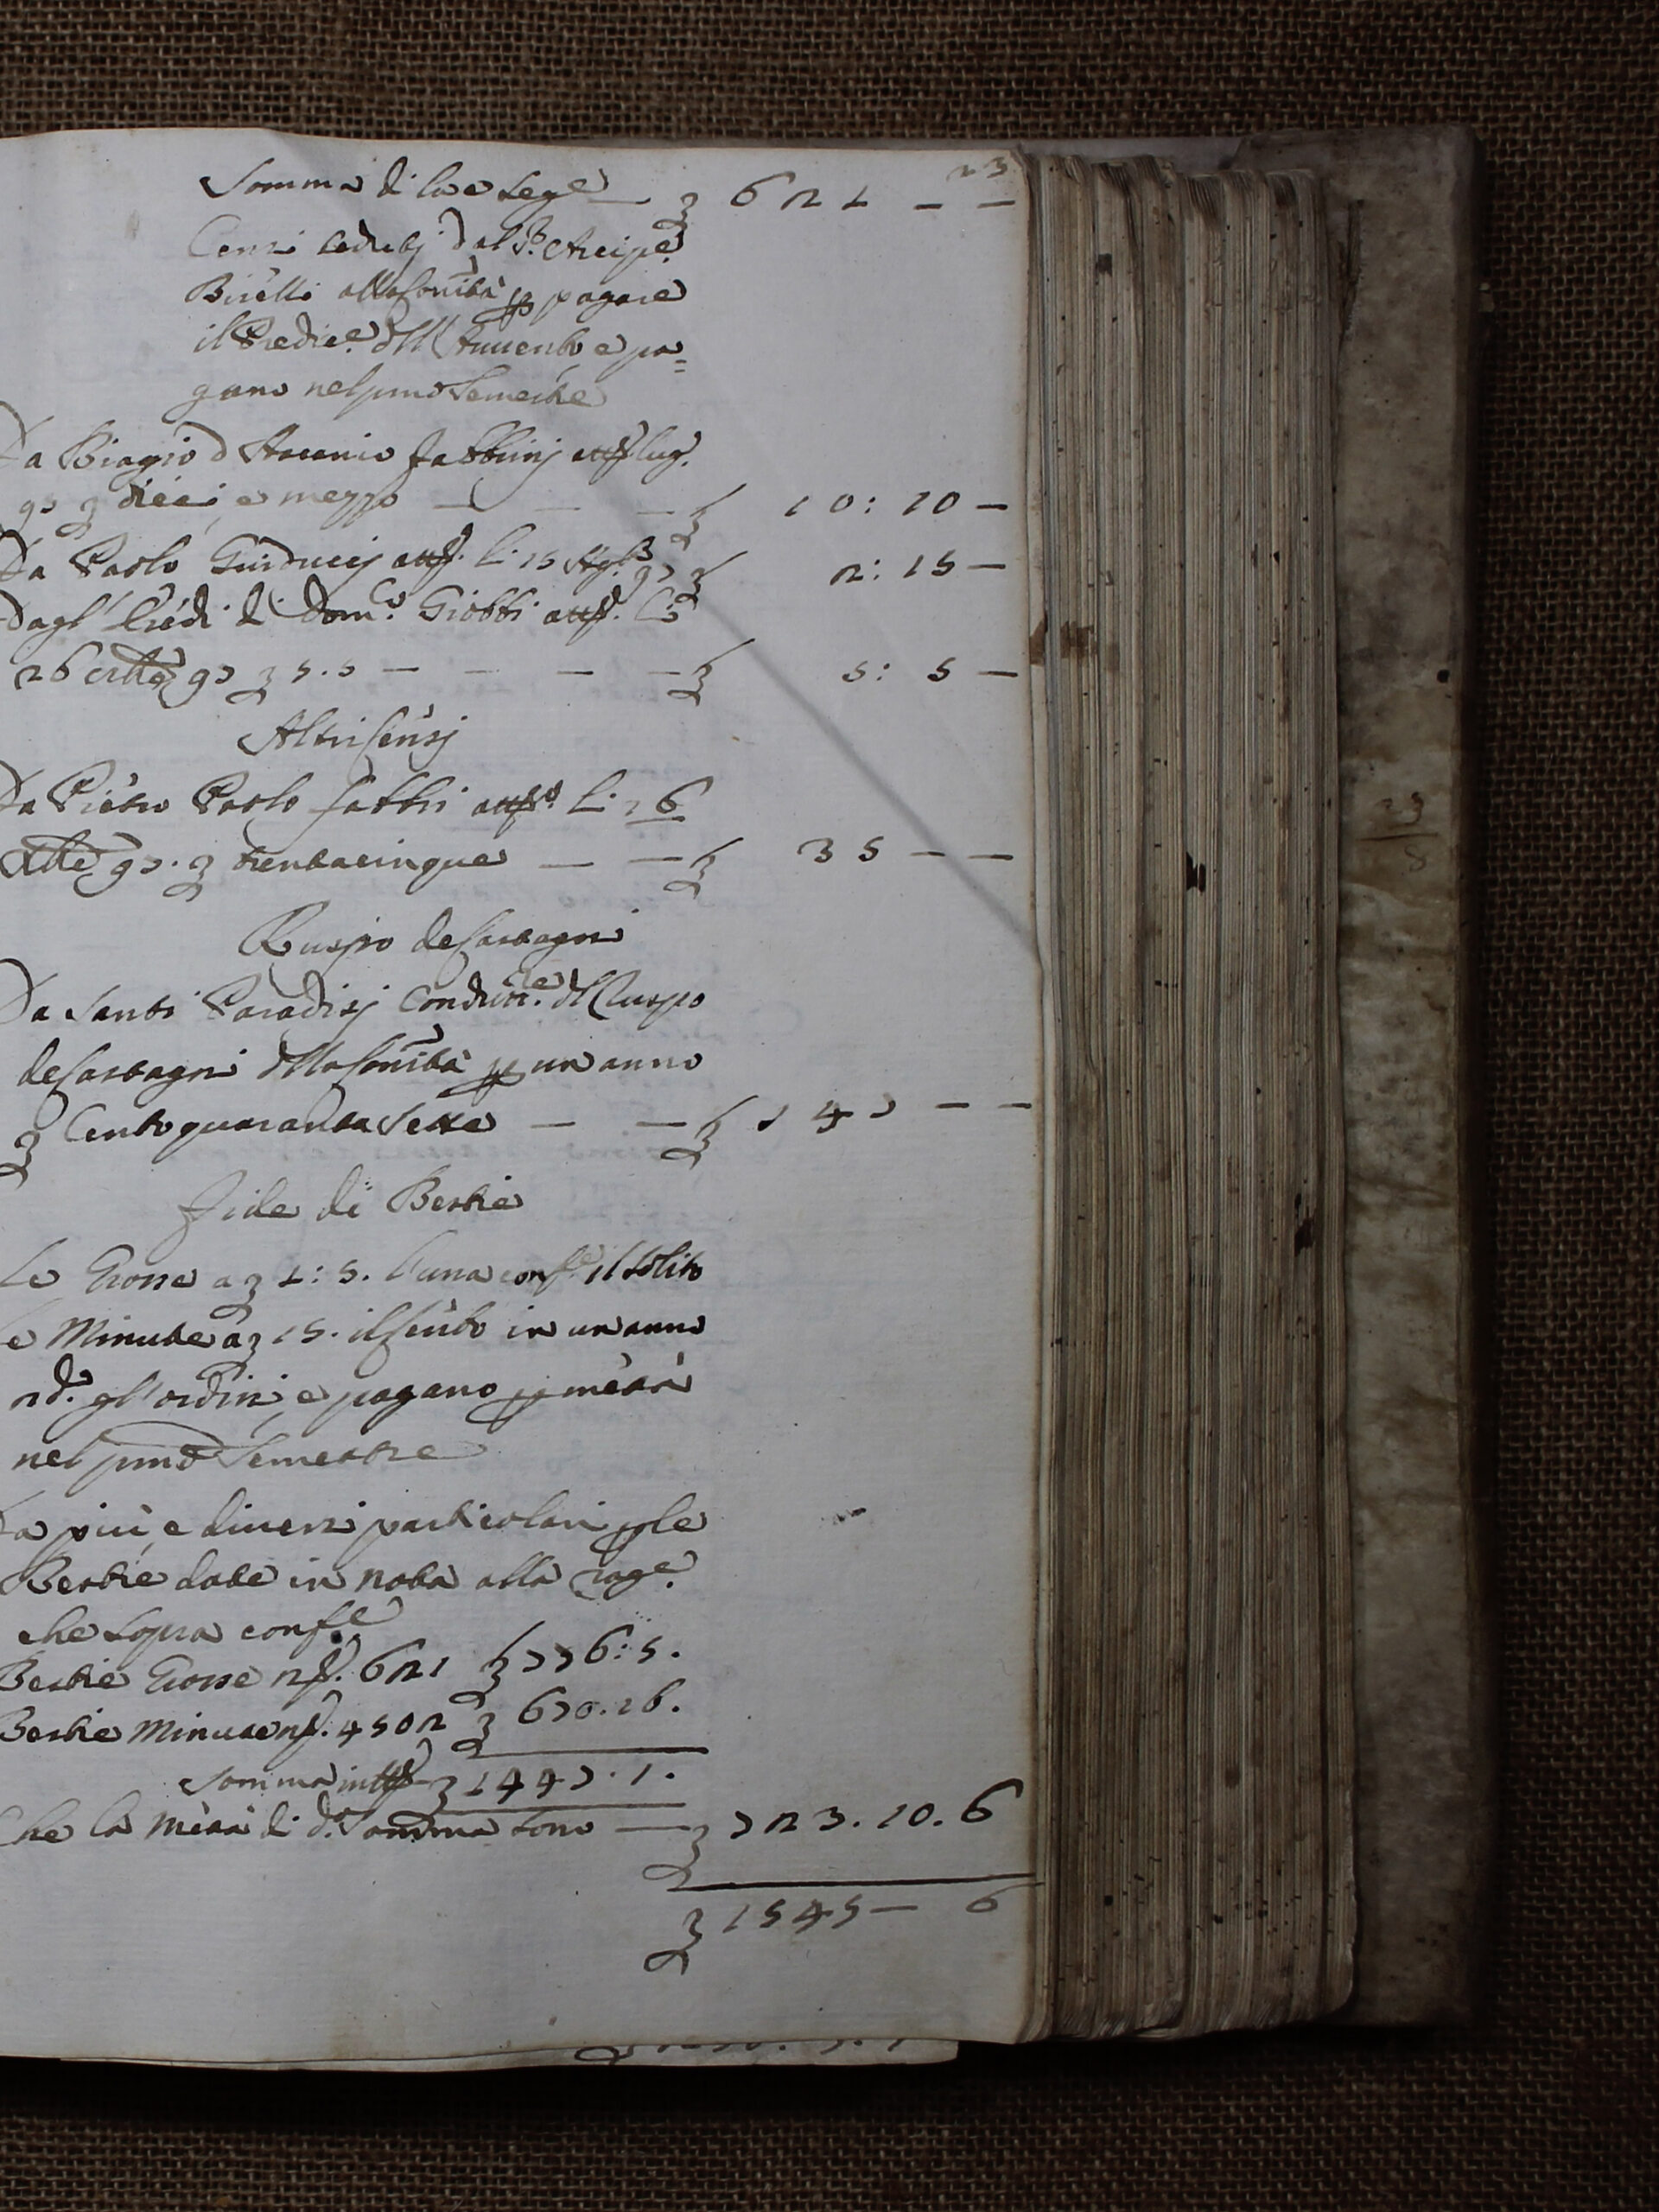 23
Somma di la e Lege — ʒ 621 — —
Censi ceduti dal S.r Arcip.e
Birelli alla Com̃ità p pagare
il Predic.e dell'Avvento e pa=
gano nel pm̃o Semestre
Da Biagio d Ascanio Fabbrinj lug.
go ʒ dieci e mezzo — — — ʒ 10: 10 —
Da Paolo Guiducij li 15 Ag.to go ʒ 2: 15 —
Dagl' Eredi di Dom.co Giobbi li
26 go ʒ 5.5 — — — — ʒ 5: 5 —
Altri Censj
Da Pietro Paolo Fabbri li 26
go. ʒ trentacinque — — ʒ 35 — —
Ruspo de Castagni
Da Santi Paradisj Condutt.e del Ruspo
de Castagni della Com̃ità p un anno
ʒ Cento quaranta Sette — — ʒ 147 — —
Fide di Bestie
Le Grosse a ʒ 1: 5. l'una conf.e il solito
e Minute a ʒ 15. il Cento in un anno
2d.o gl' ordini e pagano p metà
nel pm̃o Semestre
Da più, e diversi particolari p le
Bestie date in nota alla rag.e
che sopra conf.e
Bestie Grosse nº. 621 ʒ 776: 5.
Bestie Minute nº. 4502 ʒ 670. 16.
Somma in tto ʒ 1447. 1.
Che la metà di d.a Somma sono — ʒ 723. 10. 6
ʒ 1545 — 6